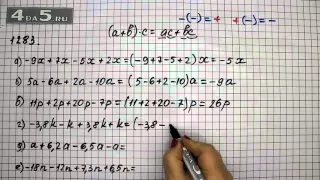 4DA5.RU
-(-) = + +(-) = -
1283. (a+b)·c = ac+bc
а) -9x+7x-5x+2x=(-9+7-5+2)x=-5x
б) 5a-6a+2a-10a=(5-6+2-10)a=-9a
в) 11p+2p+20p-7p=(11+2+20-7)p=26p
г) -3,8k-k+3,8k+k=(-3,8-
д) a+6,2a-6,5a-a=
е) -18n-12n+7,3n+6,5n=